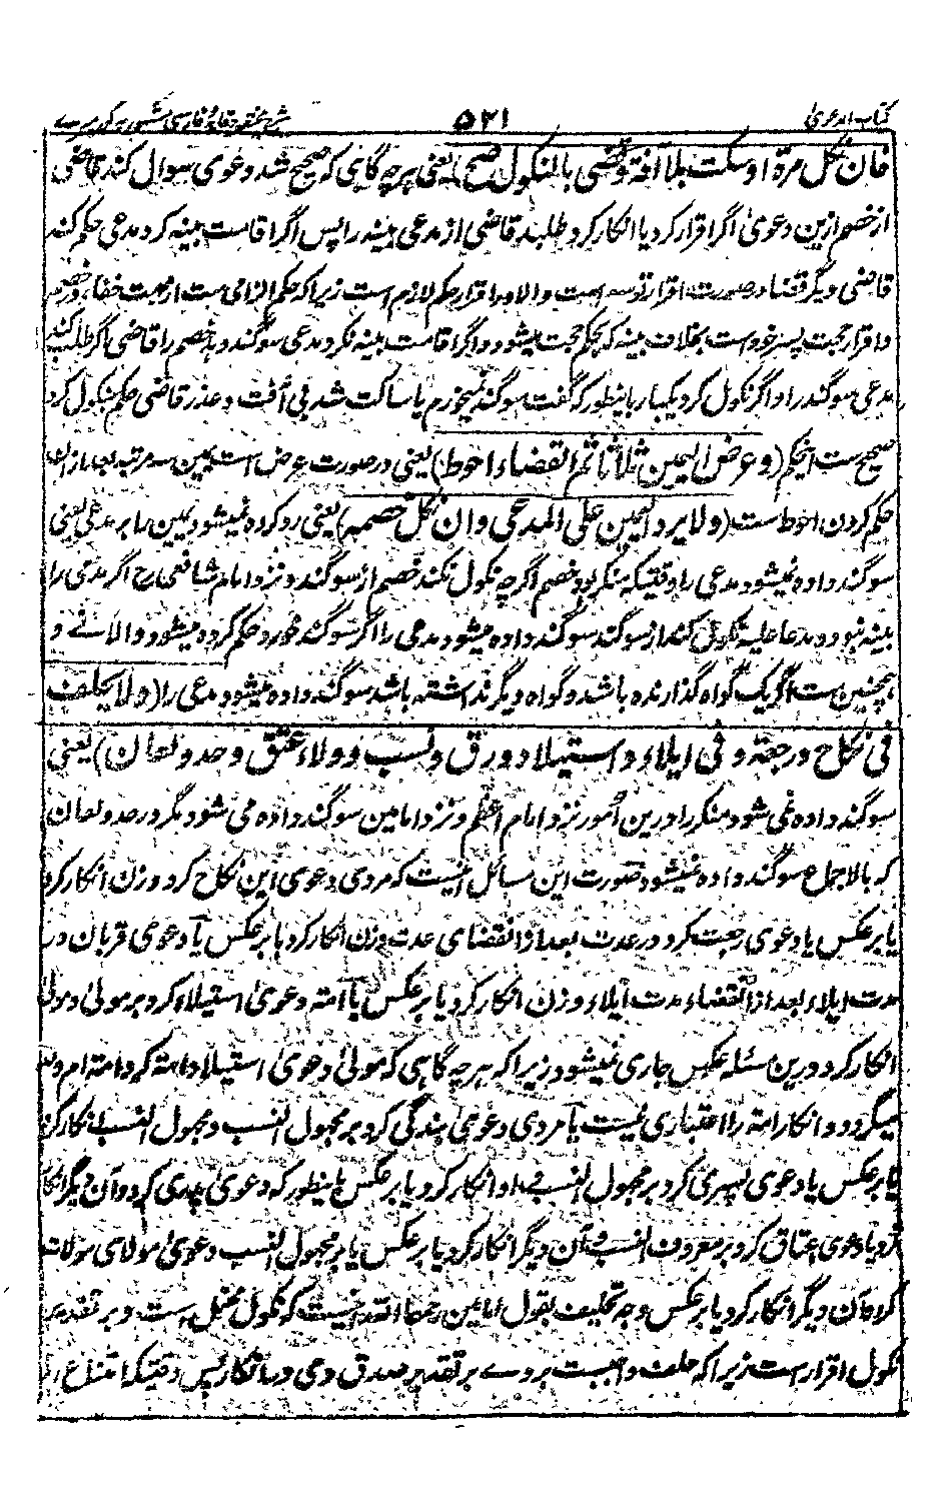 کتاب الدعویٰ ۵۲۱ شرح مختصر وقایه فارسی مشهور به کور میری
فان نکل مرة او سکت بلا آفة وقضی بالنکول صح) یعنی هر چه گاهی که صحیح شد دعوی سوال کند قاضی
از خصم ازین دعویٰ اگر اقرار کرد یا انکار کرد طلبد قاضی از مدعی بینه را پس اگر اقامت بینه کرد مدعی حکم کند
قاضی دیگر قضا در صورت اقرار توسع است والا در اقرار حکم لازم است زیرا که حکم الزامی ست از جهت خفا
و اقرار حجت بسر خود است بخلاف بینه که بحکم حجت میشود و اگر اقامت بینه نکرد مدعی سوگند دهد خصم را قاضی اگر طلب کند
مدعی سوگند را و اگر نکول کرد یکبار باینطور که گفت سوگند نمیخورم یا ساکت شد بی آفت و عذر قاضی حکم بنکول کرد
صحیح ست این حکم (و عرض الیمین ثلاثا ثم القضاء احوط) یعنی در صورت عرض است یمین سه مرتبه بعد از ان
حکم کردن احوط ست (ولا یرد الیمین علی المدعی وان نکل خصمه) یعنی رد کرده نمیشود یمین را بر مدعی یعنی
سوگند داده نمیشود مدعی را وقتیکه منکر بود خصم اگر چه نکول نکند خصم از سوگند و نزد امام شافعی رح اگر مدعی را
بینه نبود و مدعا علیه نکول کند از سوگند سوگند داده میشود مدعی را اگر سوگند خورد حکم کرده میشود والا نے و
همچنین ست اگر یک گواه گذارنده باشد و گواه دیگر نداشته باشد سوگند داده میشود مدعی را (ولا یحلف
فی نکاح ورجعة وفی ایلاء واستیلاد ورق ونسب وولاء عتق وحد ولعان) یعنی
سوگند داده نمی شود منکر را درین امور نزد امام اعظم و نزد امامین سوگند داده می شود مگر در حد و لعان
که بالاجماع سوگند داده نمیشود صورت این مسائل اینست که مردی دعوی این نکاح کرد و زن انکار کرد
یا بر عکس یا دعوی رجعت کرد در عدت بعد از انقضای عدت و زن انکار کرد یا بر عکس یا دعوی قربان در
مدت ایلاء بعد از انقضاء مدت ایلاء و زن انکار کرد یا بر عکس یا امته دعویٰ استیلاء کرد بر مولیٰ و مولیٰ
انکار کرد و درین مسئله عکس جاری نمیشود زیرا که هر چه گاهی که مولیٰ دعویٰ استیلاد امته کرد امته ام ولد
میگردد و انکار امته را اعتباری نیست یا مردی دعویٰ بندگی کرد بر مجهول النسب و مجهول النسب انکار کرد
یا بر عکس یا دعوی پسری کرد بر مجهول النسب و او انکار کرد یا بر عکس باینطور که دعویٰ پدری کرد و آن دیگر انکار
کرد یا دعوی اعتاق کرد بر معروف النسب و آن دیگر انکار کرد یا بر عکس یا بر مجهول النسب دعویٰ مولای موالات
کرد و آن دیگر انکار کرد یا بر عکس وجه تحلیف بقول امامین رحمهما الله اینست که نکول مختل ست و بر تقدیر
نکول اقرار ست زیرا که حلف واجبست بروے بر تقدیر صدق وی در انکار پس وقتیکه امتناع از